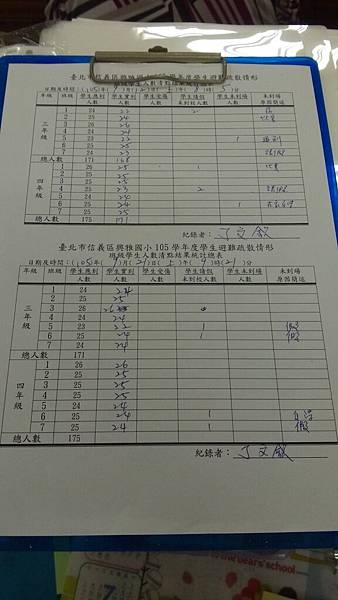 臺北市信義區興雅國小105學年度學生避難疏散情形
班級學生人數清點結果統計總表
年級 班級 學生應到人數 學生實到人數 學生受傷人數 學生請假未到校人數 學生未到場人數 未到場原因簡述
三年級
1 24 22 2
2 25 24
3 26
4 24 24
5 23 1 遲到
6 25
7 24 23
總人數 171 168
四年級
1 26 25 1
2 25 25
3 25 25
4 25 25
5 24 23 2
6 25 24 1
7 25 25
總人數 175 171
紀錄者：丁文敏
臺北市信義區興雅國小105學年度學生避難疏散情形
班級學生人數清點結果統計總表
日期及時間：(105)年(9)月(21)日(
年級 班級 學生應到人數 學生實到人數 學生受傷人數 學生請假未到校人數 學生未到場人數 未到場原因簡述
三年級
1 24 24
2 25 25
3 26
4 24 24
5 23 22 1 假
6 25 24 1 假
7 24 24
總人數 171
四年級
1 26 26
2 25 25
3 25 25
4 25 25
5 24 24
6 25 24 1
7 25 24 1 假
總人數 175
紀錄者：丁文敏
the bear's school
7